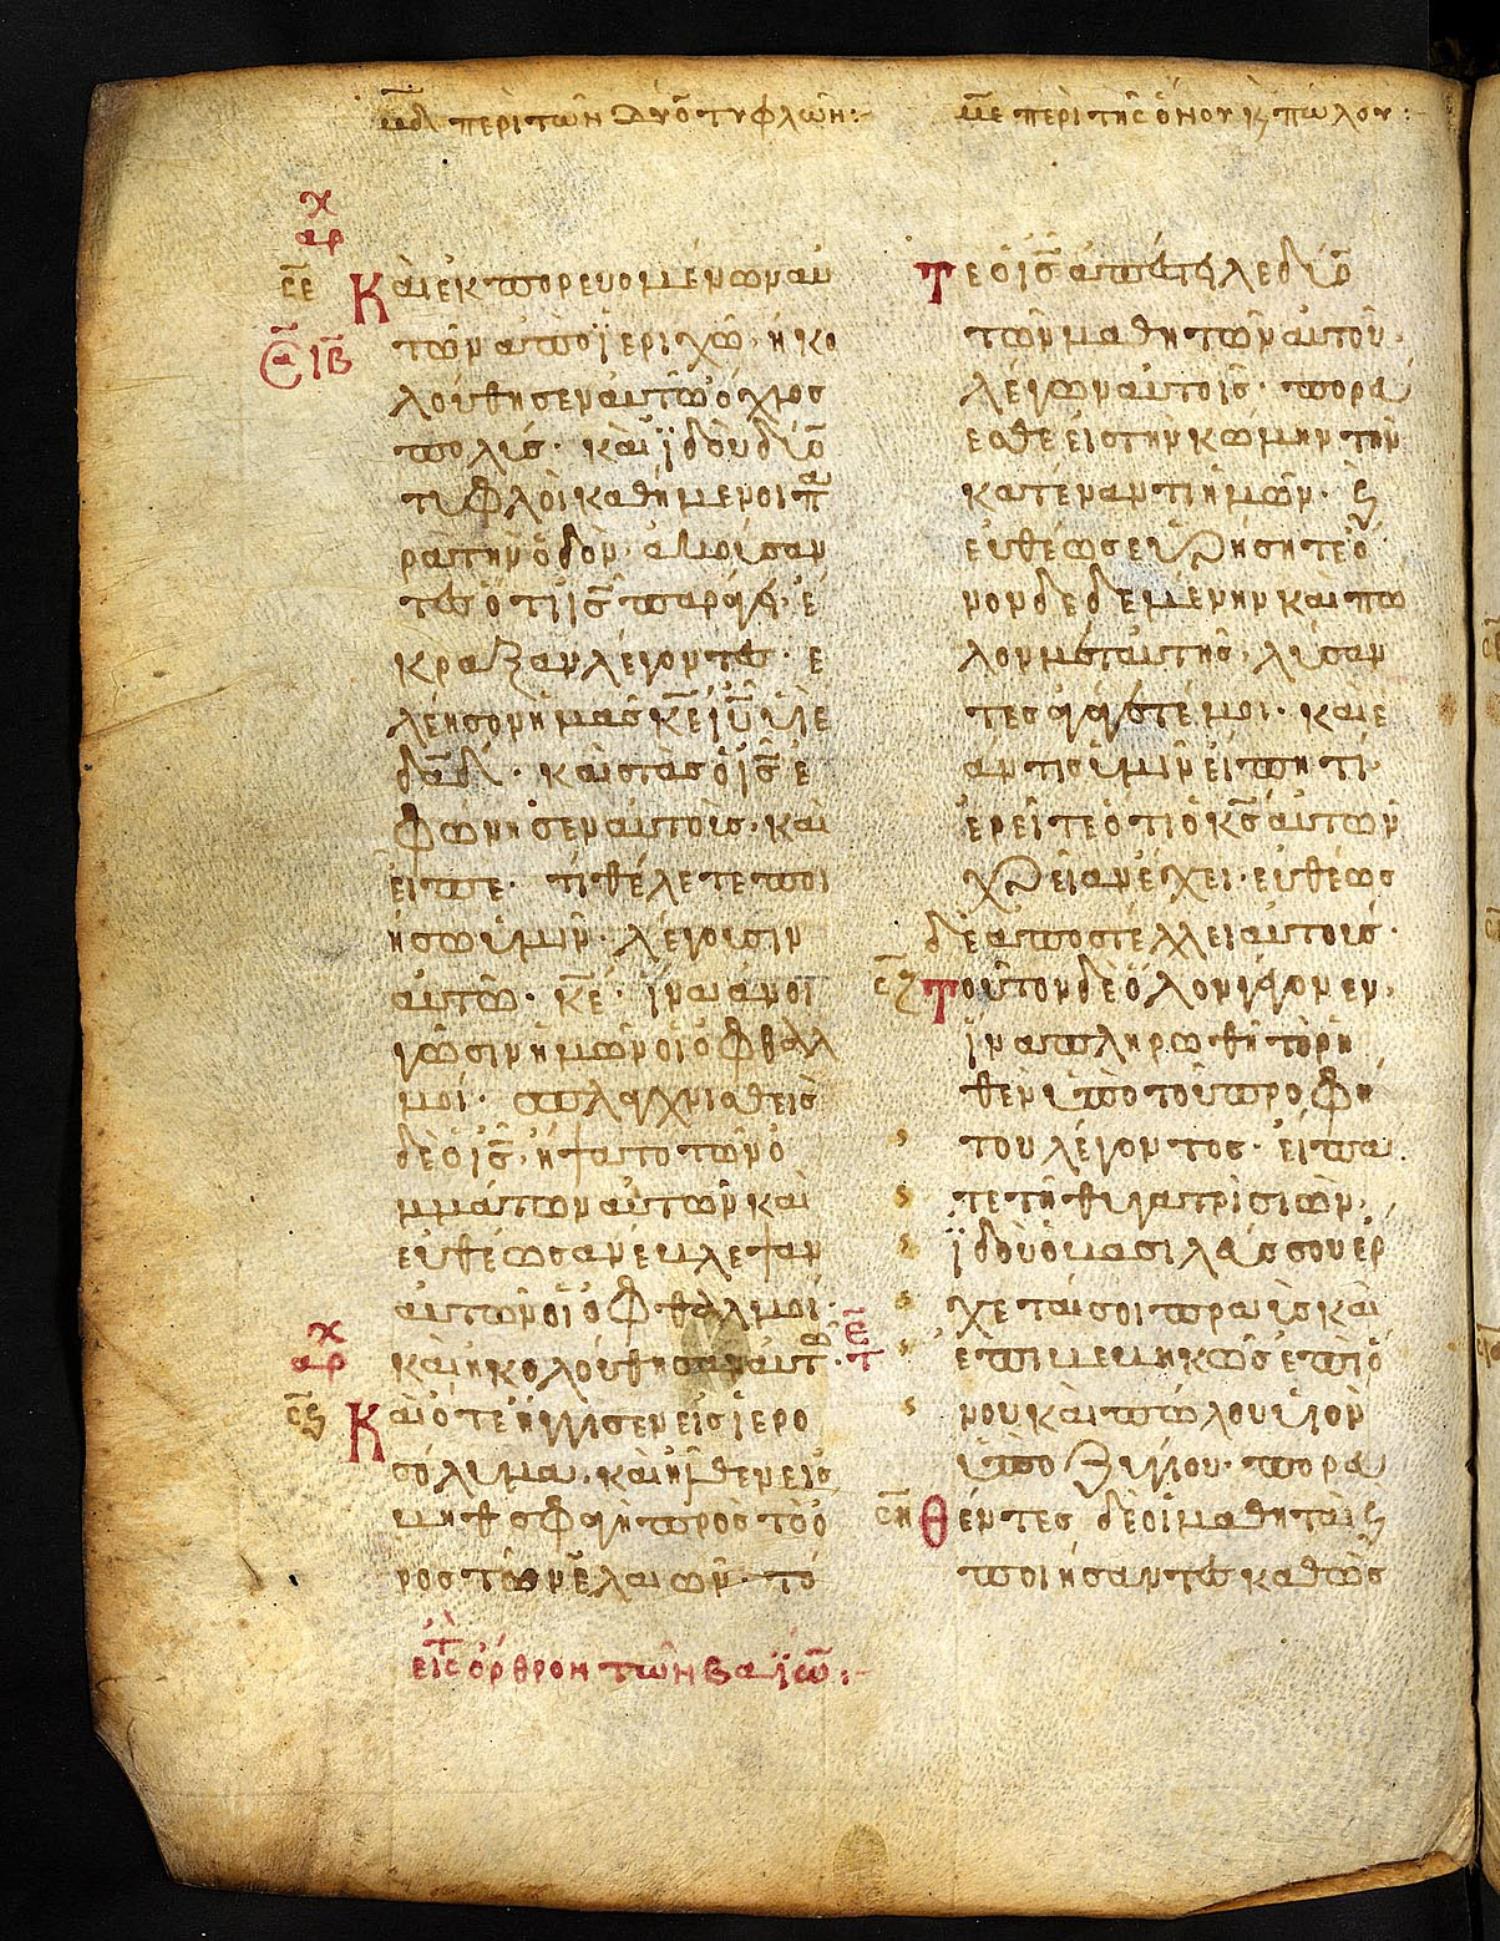 μδ περὶ τῶν δύο τυφλῶν:-
με περὶ τῆς ὄνου κ πώλου:-
χ
αρ
σε
Καὶ ἐκπορευομένων αυ
τῶν ἀπὸ ϊεριχῶ· ἠκο
ιβ
λούθησεν αυτῶ ὄχλος
πολύς· καὶ ϊδοὺ δύο
τυφλοὶ καθήμενοι πα
ρὰ τὴν ὁδὸν· ἀκούσαν
τες ὅτι ις παράγει· έ
κραξαν λέγοντες· ε
λέησον ημας κε ιυ υιὲ
δαδ· καὶ στὰς ὁ ις ἐ
φώνησεν αυτοὺς· καὶ
εἶπε· τί θέλετε ποι
ήσω ὑμῖν· λέγουσιν
αυτῶ· κε· ἵνα ανοι
γῶσιν ἡμῶν οἱ ὀφθαλ
μοί· σπλαγχνισθεὶς
δὲ ὁ ις· ήψατο τῶν ὀ
μμάτων αυτῶν καὶ
ευθέως ανέβλεψαν
αυτῶν οἱ ὀφθαλμοί·
χ
αρ
καὶ ηκολούθησαν αυτω· τε
σς
Καὶ ότε ήγγισεν εις ιερο
σόλυμα· καὶ ῆλθεν εις
βηθσφαγὴ πρὸς τὸ ό
ρος τῶν ελαιῶν· τό
εἰς τ ὄρθρον τῶν βαϊω:-
Τε ὁ ις απέστειλε δύο
τῶν μαθητῶν αυτοῦ·
λέγων αυτοῖς· πορεύ
εσθε εις τὴν κώμην τὴν
κατέναντι ημῶν· κ
ευθέως ευρήσητε ό
νον δεδεμένην καὶ πω
λον μετ αυτῆς· λύσαν
τες αγάγετέ μοι· καὶ ε
άν τις ὑμῖν είπη τι·
ερεῖτε ότι ὁ κς αυτῶν
χρείαν έχει· ευθέως
δὲ αποστέλλει αυτους·
σζ
Τοῦτο δὲ όλον γέγονεν·
ίνα πληρωθῆ τὸ ρη
θὲν ὑπὸ τοῦ προφή
του λέγοντος· είπα
τε τῆ θυγατρὶ σιών·
ϊδοὺ ὁ βασιλεύς σου έρ
χεταί σοι πραυς καὶ
επιβεβηκὼς επὶ ό
νου καὶ πῶλον υἱὸν
ὑποζυγίου· πορευ
ση
θέντες δὲ οἱ μαθηταὶ κ
ποιήσαντες καθὼς